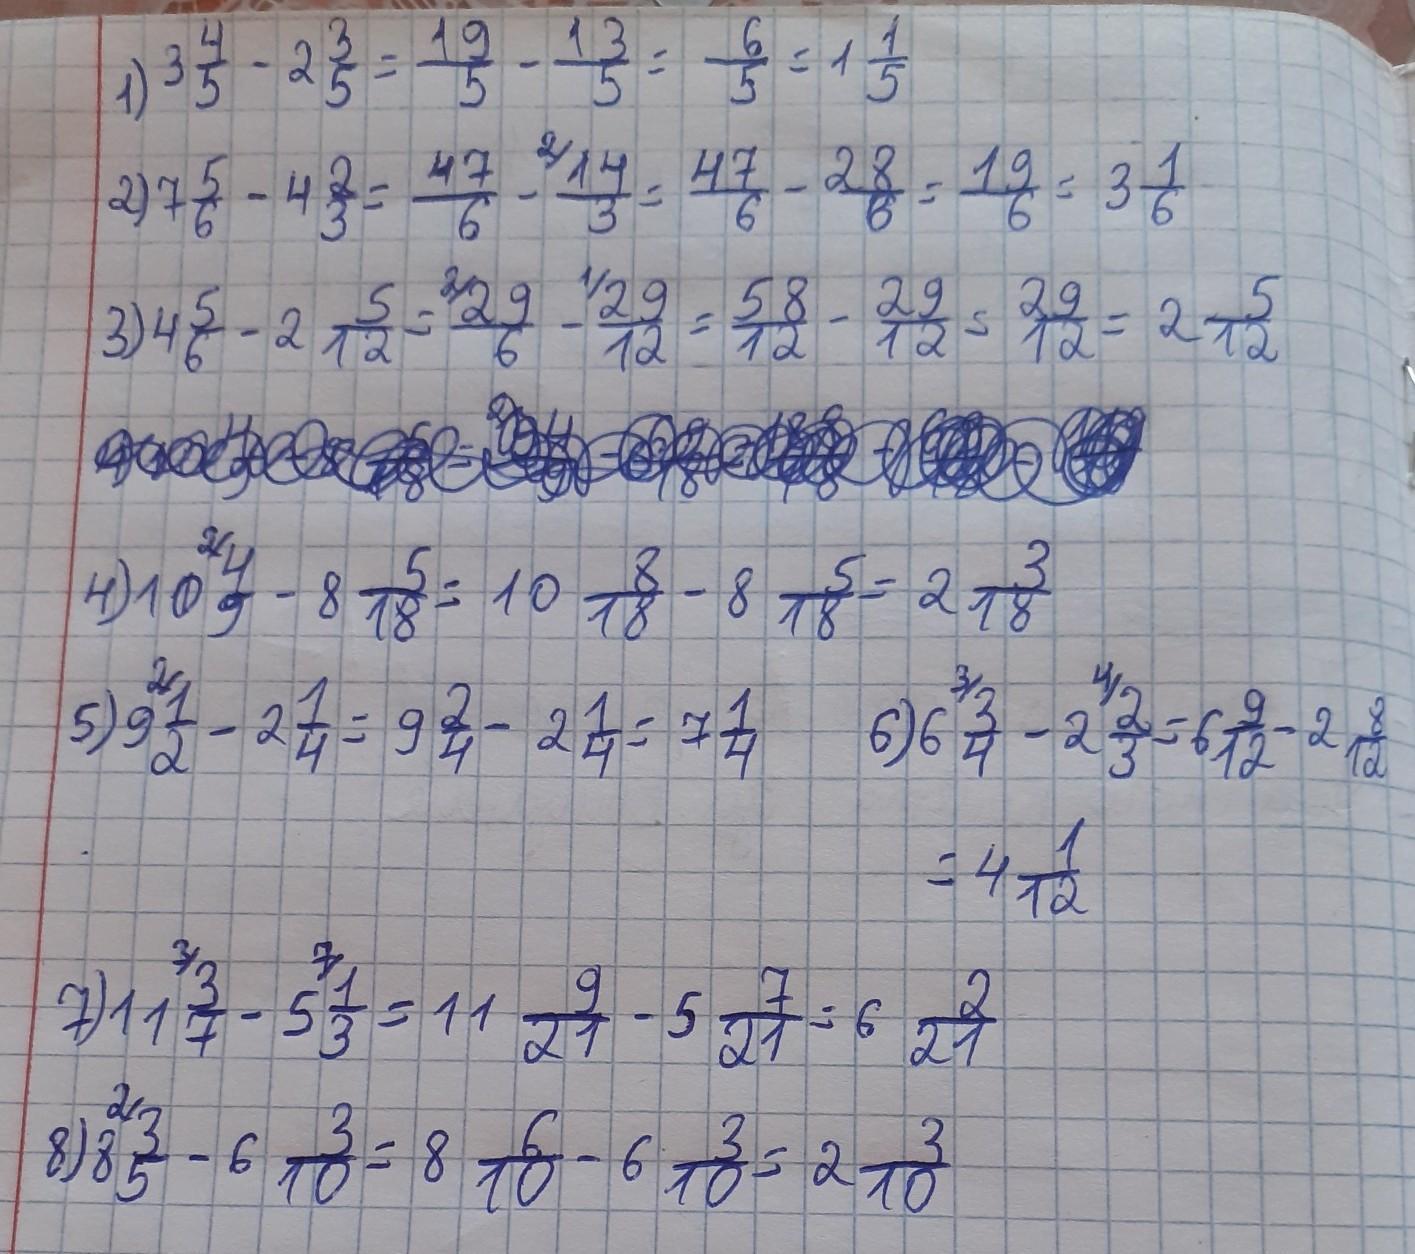 1) 3 4/5 - 2 3/5 = 19/5 - 13/5 = 6/5 = 1 1/5
2) 7 5/6 - 4 2/3 = 47/6 - 2/ 14/3 = 47/6 - 28/6 = 19/6 = 3 1/6
3) 4 5/6 - 2 5/12 = 2/ 29/6 - 1/ 29/12 = 58/12 - 29/12 = 29/12 = 2 5/12
4) 10 2/ 4/9 - 8 5/18 = 10 8/18 - 8 5/18 = 2 3/18
5) 9 2/ 1/2 - 2 1/4 = 9 2/4 - 2 1/4 = 7 1/4
6) 6 3/ 3/4 - 2 4/ 2/3 = 6 9/12 - 2 8/12
= 4 1/12
7) 11 3/ 3/7 - 5 7/ 1/3 = 11 9/21 - 5 7/21 = 6 2/21
8) 8 2/ 3/5 - 6 3/10 = 8 6/10 - 6 3/10 = 2 3/10